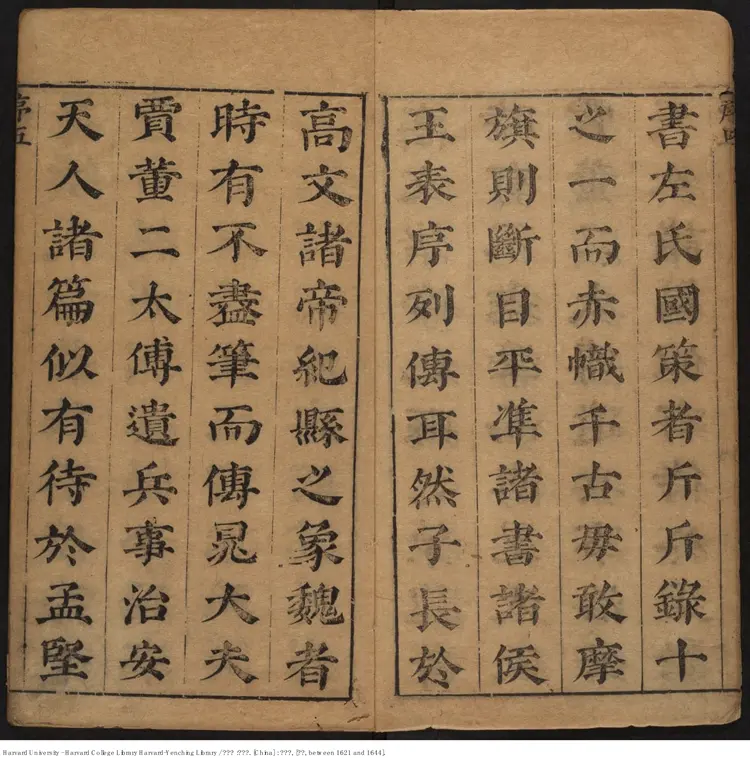 書左氏國策者斤斤錄十
之一而赤幟千古毋敢摩
旗則斷目平準諸書諸侯
王表序列傳耳然子長於
高文諸帝紀縣之象魏者
時有不盡筆而傳晁大夫
賈董二太傅遺兵事治安
天人諸篇似有待於孟堅
序五
Harvard University - Harvard College Library Harvard-Yenching Library / ??? : ???. [China] : ???, [??, between 1621 and 1644].